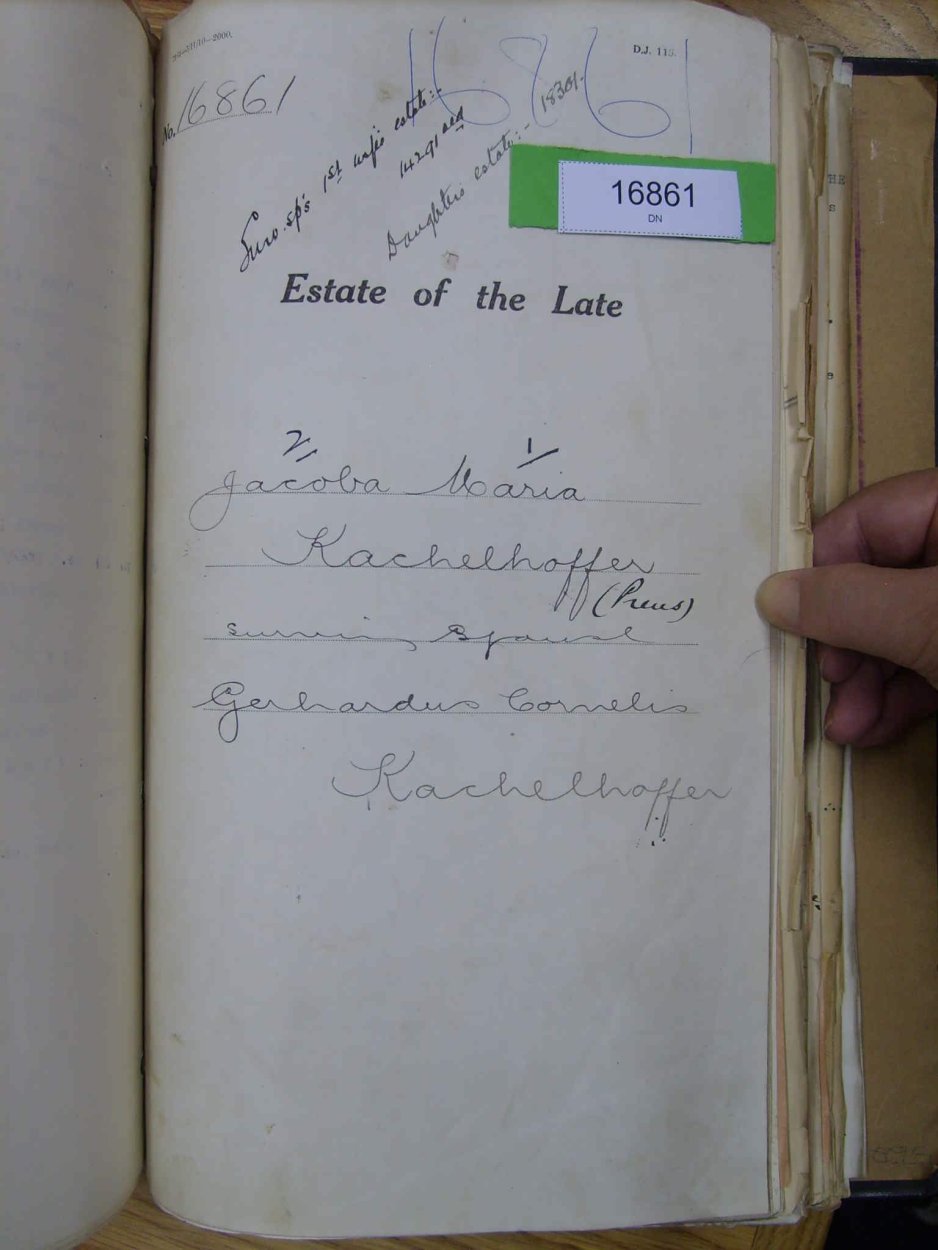 D.J. 113.
No. 16861
16861
Surv. sp's 1st wife's estate:-
14291
Daughter's estate:- 18301.
16861
DN
Estate of the Late
2/ 1/
Jacoba Maria
Kachelhoffer
(Preus)
Surviving Spouse
Gerhardus Cornelis
Kachelhoffer